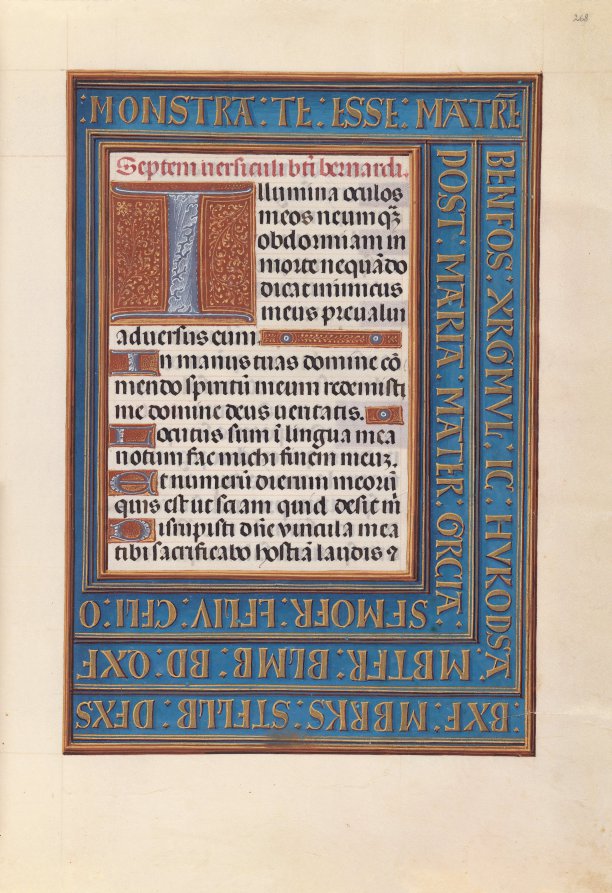 268
:MONSTRA: TE: ESSE: MATR̃E
Septem uersiculi bti bernardi.
Illumina oculos
meos ne umqʒ
obdormiam in
morte nequādo
dicat inimicus
meus preualui
aduersus eum.
In manus tuas domine cō
mendo spiritū meum redemisti
me domine deus ueritatis.
Locutus sum ī lingua mea
notum fac michi finem meuʒ.
Et numerū dierum meorū
quis est ut sciam quid desit m̄
Disrupisti dn̄e vincula mea
tibi sacrificabo hostiā laudis ⁊
POST: MARIA: MATER: GRCIA:
BENFOS: XRGMVL: IC: HVKODSA
SFMOFR: LFLIV: CFLI: O
MBTFR: BLMB: BD: QXF
:BXF: MBRKS: STFLLB: DFXS